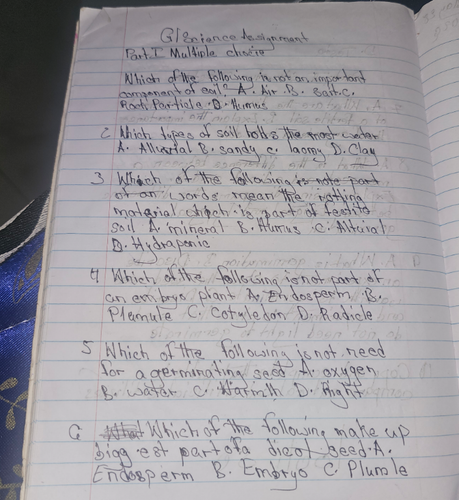 G1 Science Assignment
Part I Multiple choice
Which of the following is not an important
component of soil? A. Air B. Salt C.
Rock Particle D. Humus
2 Which types of soil holds the most water
A. Alluvial B. sandy C. loamy D. Clay
3 Which of the following is note part
of an words mean the
material which is part of
soil A. mineral B. Humus C.
D. Hydroponic
4 Which of the following is not part of
an embryo plant A. Endosperm B.
Plumule C. Cotyledon D. Radicle
5 Which of the following is not need
for a germinating seed A. oxygen
B. water C. Warmth D.
6 Which of the following make up
bigg est part of a dicot seed. A.
Endosperm B. Embryo C. Plumle